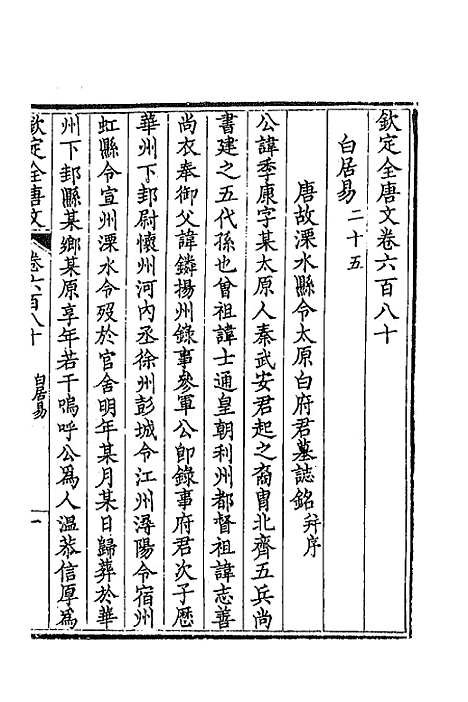 欽定全唐文卷六百八十
白居易二十五
唐故溧水縣令太原白府君墓誌銘并序
公諱季康字某太原人秦武安君起之裔胄北齊五兵尚
書建之五代孫也曾祖諱士通皇朝利州都督祖諱志善
尚衣奉御父諱鏻揚州錄事參軍公卽錄事府君次子歷
華州下邽尉懷州河内丞徐州彭城令江州潯陽令宿州
虹縣令宣州溧水令歿於官舍明年某月某日歸葬於華
州下邽縣某鄉某原享年若干嗚呼公爲人溫恭信厚爲
欽定全唐文 卷六百八十 白居易 一